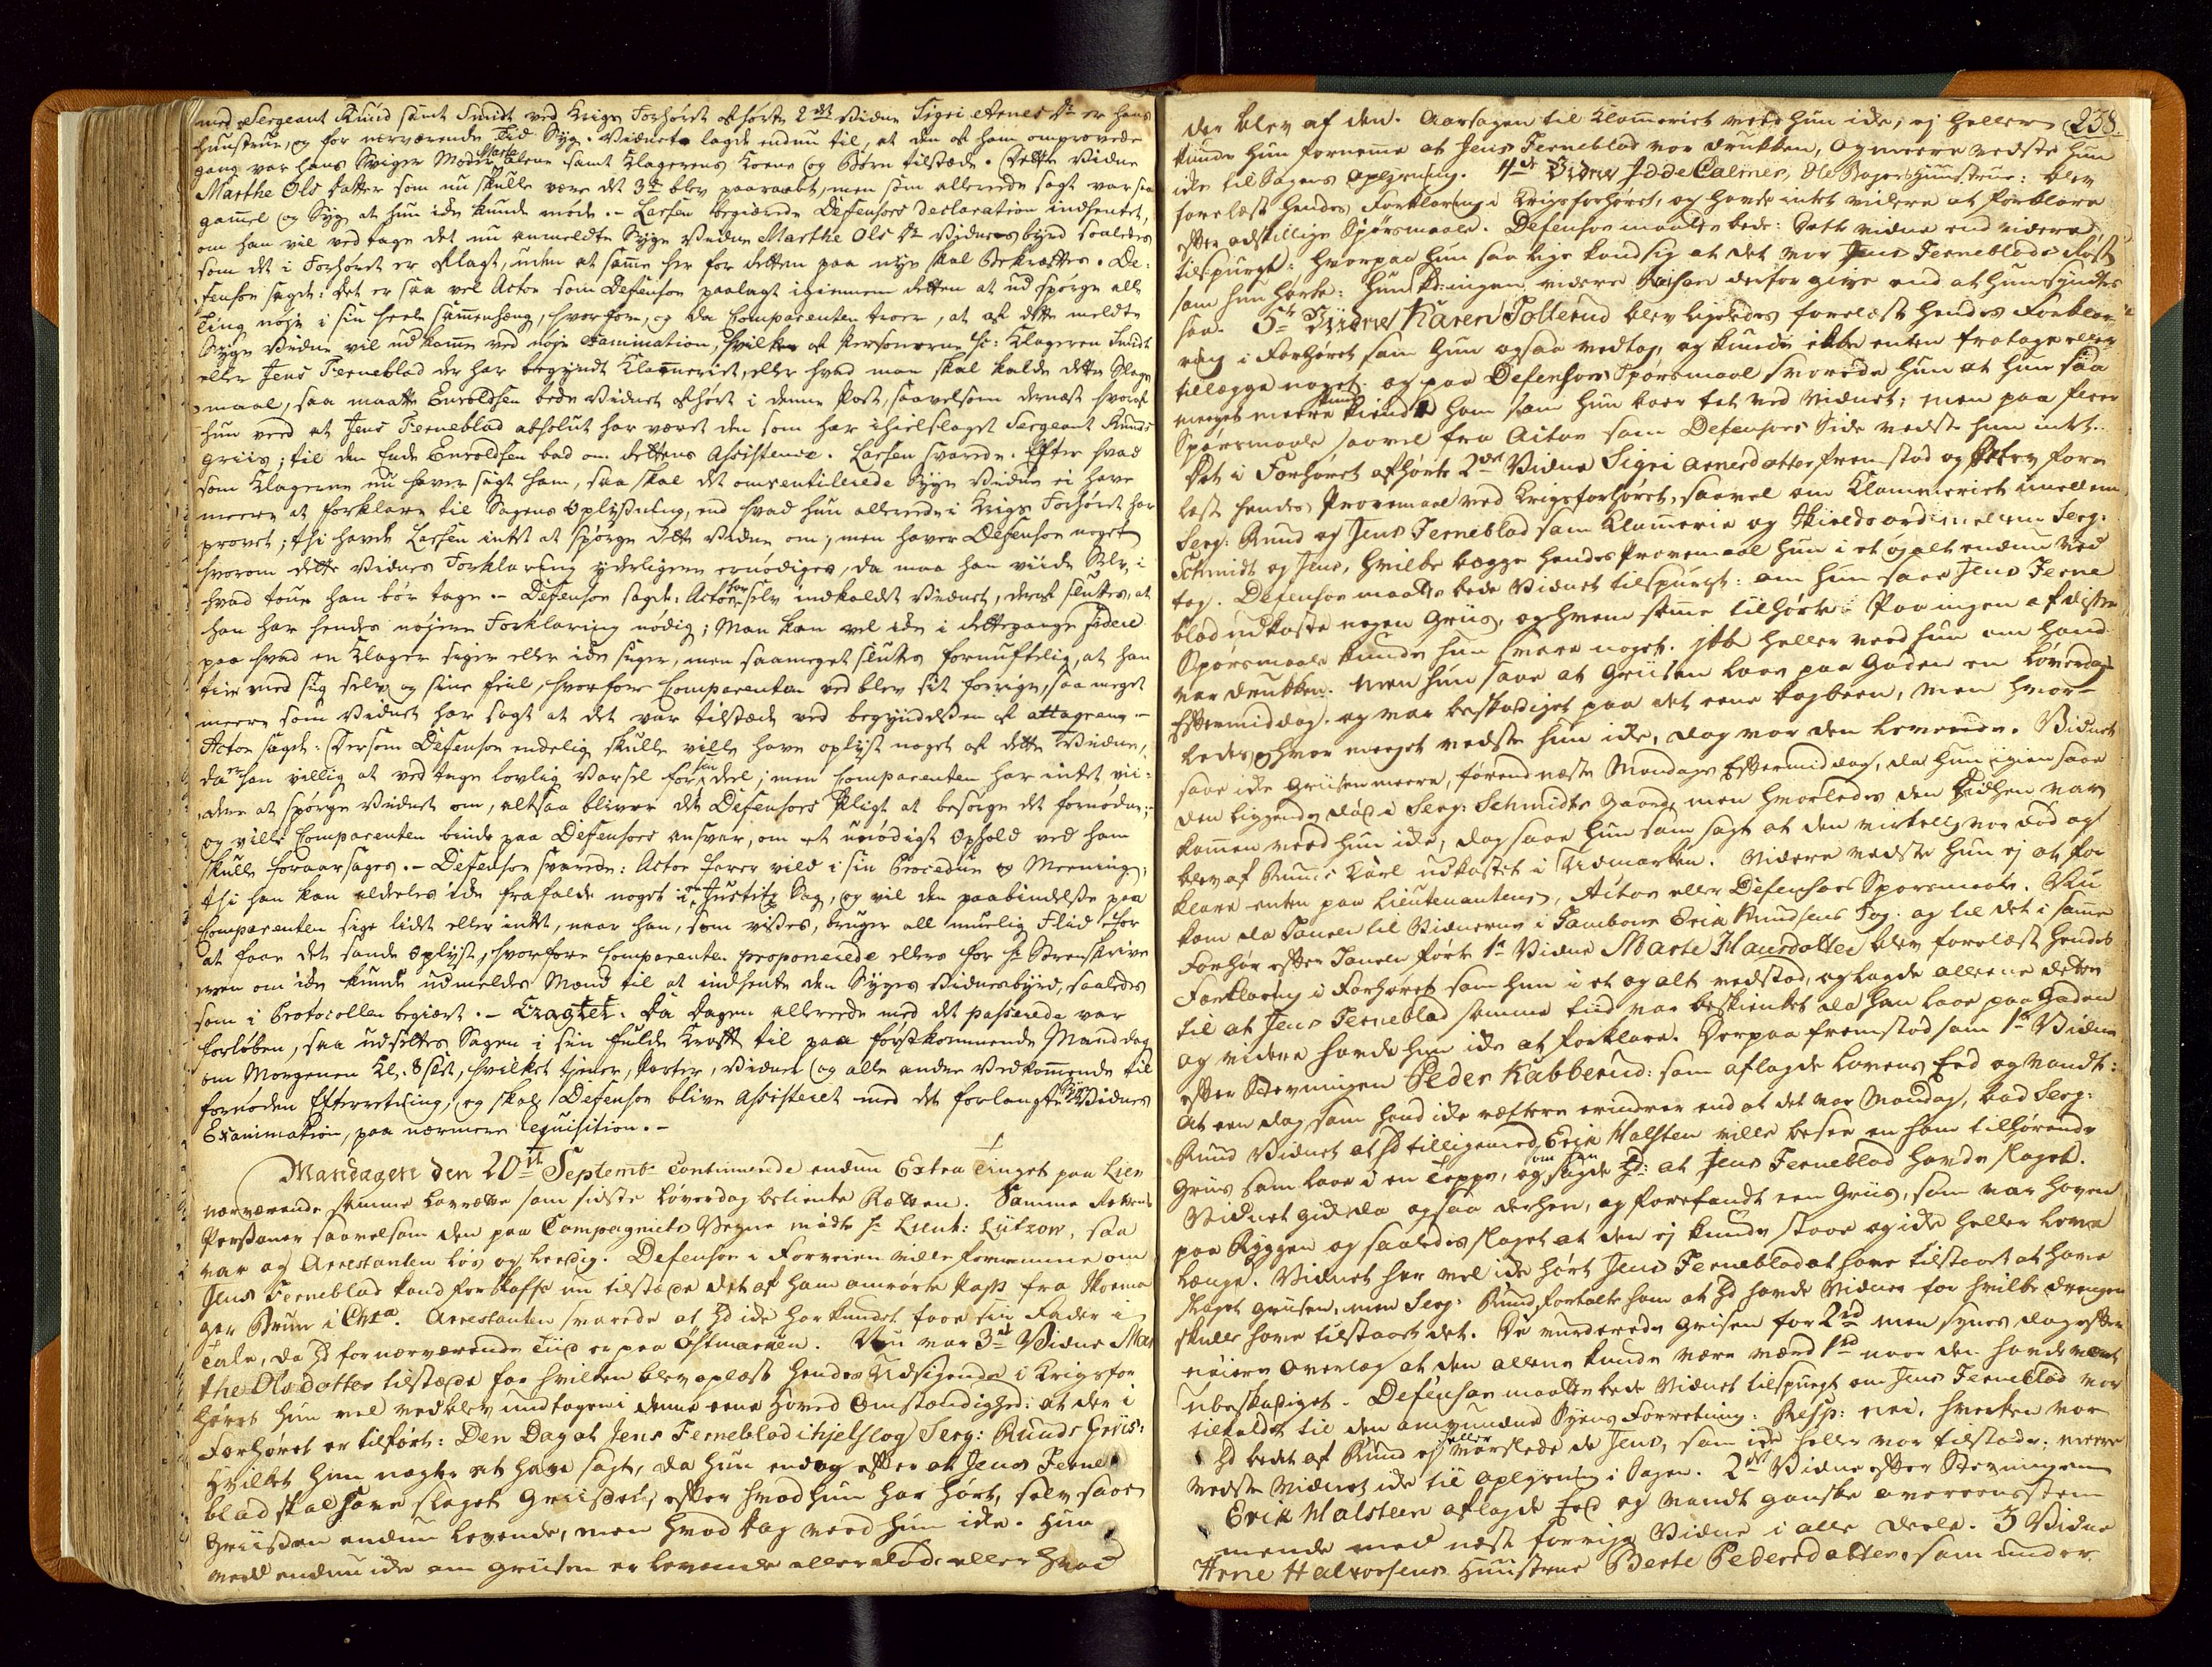 med Sergeant Ruud samt Smidt ved Krigs Forhöret afhörte 2det Vidne Sigri Arnes Dr er hans
Huustrue, og for nærværende Tid Syg. Vidnet lagde endnu til, at den af ham omprovede
gang var hans Sviger Moder Marte alene samt Klagerens Kone og Börn tilstæde. Dette Vidne
Marthe Ols Datter som nu skulle være det 3de blev paaraabt, men som allerede sagt var saa
gammel og Syg at hun ide kunde möde. - Larsen begiærede Defensors declaration indhentet,
om han vil vedtage det nu anmeldte Syge Vidne Marthe Ols Dr Vidnesbyrd saaledes
som det i Forhöret er aflagt, uden at samme her for Retten paa nye skal bekræftes. De-
fensor sagde: det er saa vel Actor som Defensor paalagt igiennem Retten at udspörge alle
Ting nöje i sin heele sammenhæng, hvorfore, og da Comparenten troer, at af dette meldte
Syge Vidne vil udkomme ved nöje Examination, hvilken af Personerne sc: Klageren Smidt
eller Jens Ferneblad der har begyndt Klammeriet, eller hvad man skal kalde dette Slags
maal, saa maatte Enevoldsen bede Vidnet afhört i denne Post, saavelsom dernæst hvoraf
hun veed at Jens Ferneblad absolut har været den som har ihielslaget Sergeant Ruuds
Griis; til den Ende Enevoldsen bad om Rettens Assistence. Larsen svarede. Efter hvad
som Klagerne nu haver sagt ham, saa skal det omventilerede Syge Vidne ei have
meere at forklare til Sagens Oplysning, end hvad hun allerede i Krigs Forhöret har
provet; thi havde Larsen intet at spörge dette Vidne om; men haver Defensor noget
hvorom dette Vidnes Forklaring yderligere ernödiges, da maa han vide Selv, i
hvad tour han bör tage. - Defensor sagde: Actor har selv indkaldet Vidnet, deraf sluttes, at
han har hendes nöjere Forklaring nödig; Man kan vel ide i Rettergange fidere
paa hvad en Klager siger eller ide siger, men saameget sluttes fornuftelig, at han
tier med sig selv og sine feil, hvorfore Comparenten ved blev sit forrige, saa meget
meere som Vidnet har sagt at det var tilstæde ved begyndelsen af attaqven. -
Actor sagde: Dersom Defensor endelig skulle ville have oplyst noget af dette Vidne,
da er han villig at vedtage lovlig Varsel for sin deel; men Comparenten har intet vii-
dere at spörge Vidnet om, altsaa bliver det Defensors Pligt at besörge det fornödne;
og ville Comparenten binde paa Defensors ansvar, om et unödigt Ophold ved ham
skulle foraarsages. - Defensor svarede: Actor farer vild i sin Procedure og Meening;
thi han kan aldeeles ide frafalde noget i en Justitz Sag, og vil den paabindelse paa
Comparenten sige lidet eller intet, naar han, som vises, bruger all muelig Flid for
at faae det sande Oplyst, hvorfore Comparenten proponerede ellers for Hr Sorenskrive
ren om ide kunde udmeldes Mænd til at indhente den Syges Vidnesbyrd, saaledes
som i Protocollen begiært. - Eragtet: Da Dagen allerede med det passerede var
forlöben, saa udsættes Sagen i sin fulde Kraft til paa förstkommende Manddag
om Morgenen Kl. 8 slet, hvilket tjener, Parter, Vidner og alle andre Vedkommende til
fornöden Efterretning, og skal Defensor blive Assisteret med det forlangte Syge Vidnes
Examination, paa nærmere Requisition. -
Mandagen den 20de Septembr Continuerede endnu Extra Tinget paa Lier
nærværende samme Lavrætte som sidste Löverdag betiente Rætten. Samme Rettens
Personer saavelsom den paa Compagniets Vegne mödte Hr Lieut: Lützow, saa
var og Arrestanten lös og leedig. Defensor i Forveien ville fornemme om
Jens Ferneblad kand forskaffe nu tilstæde det af ham anrörte Pass fra Skoema
ger Bruun i Chra. Arrestanten svarede at hd ide har kundet faae sin Fader i
Tale, da hd for nærværende Tiid er paa Östmarken. Nu var 3de Vidne Mar
the Olsdatter tilstæde for hvilken blev oplæst hendes Udsigende i Krigsfor
höret hun vel vedblev undtagen i denne eene Hoved Omstændighed: at der i
Forhöret er tilfört: Den Dag at Jens Ferneblad ihjelslog Serg: Ruuds Griis:
Hvilket hun nægter at have sagt, da hun endog efter at Jens Ferne
blad skal have slaget Griisen, efter hvad hun har hört, selv saae
Griisen endnu levende, men hvad Dag veed hun ide. Hun
veed endnu ide om Griisen er levende eller död eller hvad
238.
der blev af den. Aarsagen til Klammeriet veed hun ide, ej heller
kunde hun fornemme at Jens Ferneblad var drukken, og meere vedste hun
ide til Sagens oplysning. 4de Vidne Idde Calmer, Ole Bagers Huustrue: blev
forelæst hendes Forklaring i Krigsforhöret, og havde intet videre at forklare
efter adskillige Spörsmaale. Defensor maatte bede: Dette vidne end videre
tilspurgt: hvorpaa hun saa lige kand sig at det var Jens Ferneblads Röst
som hun hörte: hun kd: ingen videre Raison derfor give end at hun syndtes
saa. 5te Vidne Karen Tollerud blev ligeledes forelæst hendes Forklar-
ring i Forhöret som hun ogsaa vedtog, og kunde ikke enten fratage eller
tillægge noget. og paa Defensors Spörsmaal svarede hun at hun saa
meeget meere kunde kiende ham som hun boer tæt ved Vidnet; men paa fleere
Spörsmaale saavel fra Actor som Defensors Side vedste hun intet.
Det i Forhöret afhörte 2det Vidne Sigri Arnesdatter fremstod og blev fore
læst hendes Provemaal ved Krigsforhöret, saavel om Klammeriet imellem
Serg: Ruud og Jens Ferneblad som Klammerie og Skields ord imellem Serg:
Schmidt og Jens, hvilke begge hendes Provemaal hun i et og alt endnu ved
tog. Defensor maatte bede Vidnet tilspurgt: om hun saae Jens Ferne
blad udkaste nogen Griis, og hvem samme tilhörte: Paa ingen af disse
Spörsmaale kunde hun svare noget. jkke heller veed hun om hand
var drukken. men hun saae at Griisen laae paa Gaden en Löverdags
Eftermiddag. og var beskadiget paa det eene Bagbeen, men hvor-
ledes og hvor meeget vedste hun ide, dog var den levende. Vidnet
saae ide Griisen meere, förend næste Mandags Eftermiddag, da hun igien saae
den liggende död i Serg: Schmidts Gaard, men hvorledes den did hen var
kommen veed hun ide, dog saae hun som sagt at den virkelig var död og
blev af Ruuds Karl udkastet i Udmarken. Videre vedste hun ej at for
klare enten paa Lieutenantens, Actors eller Defensors Spörsmaale. Nu
kom da Touren til Vidnerne i Tambour Erik Knudsens Sag: og til det i samme
Forhör efter Touren förte 1te Vidne Marte Hansdatter blev forelæst hendes
Forklaring i Forhöret som hun i et og alt vedstod, og lagde alleene dette
til at Jens Ferneblad samme tiid var beskienket da han laae paa Gaden
og videre havde hun ide at forklare. Derpaa fremstod som 1te Vidne
efter Stevningen Peder Kabberud: som aflagde Lovens Eed og vandt:
At een dag som hand ide rettere erindrer end at det var Mandag, bad Serg:
Ruud Vidnet at hd tilligemed Erik Halsten ville besee en ham tilhörende
Griis som laae i en Teppe, og som han sagde hd: at Jens Ferneblad havde slaget.
Vidnet gik da ogsaa derhen, og forefandt een Griis, som var hoven
paa Ryggen og saaledes slaget at den ej kunde staae og ide heller leve
længe. Vidnet har vel ide hört Jens Ferneblad at have tilstaaet at have
slaget Griisen, men Serg: Ruud fortalte ham at hd havde Vidner for hvilke drengen
skulle have tilstaaet det. De vurderede Grisen for 2rd men synes dog efter
nöiere Overlæg at den allene kunde være værd 1rd naar den havde været
ubeskadiget. Defensor maatte bede Vidnet tilspurgt om Jens Ferneblad var
tilkaldet til den omvundne Syens Forretning: Resp: nei, hverken var
hd bedt af Ruud ej heller varslede de Jens, som ide heller var tilstæde: meere
vedste Vidnet ide til oplysning i Sagen. 2det Vidne efter Stevningen
Erik Halsteen aflagde Eed og vandt ganske overeensstem
mende med næst forrige Vidne i alle deele. 3 Vidne
Arne Halvorsens Huustrue Berte Pedersdatter, som under